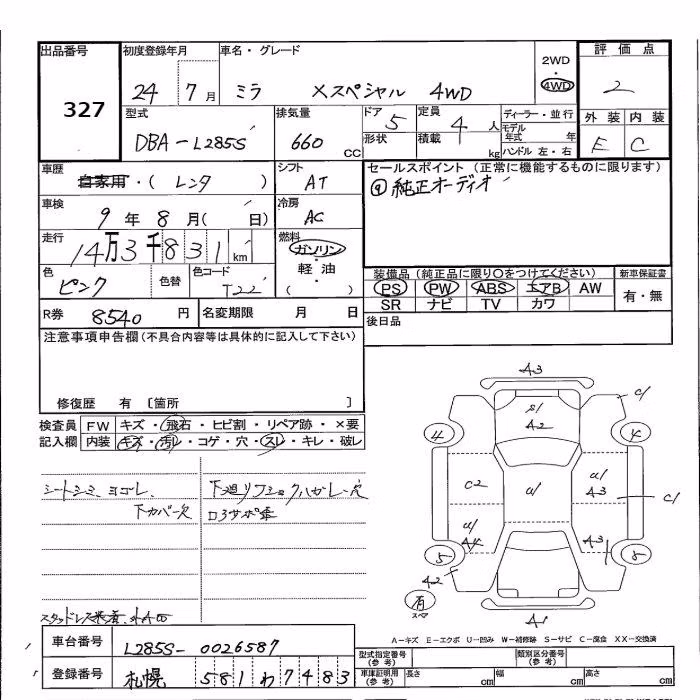 出品番号 初度登録年月 車名・グレード 2WD 評価点
327 24 7月 ミラ Xスペシャル 4WD ・ 4WD 2
型式 排気量 ドア 5 定員 4人 ディーラー・並行 外装 内装
DBA-L285S 660 CC 形状 積載 kg モデル年式 年 E C
ハンドル 左・右
車歴 自家用・( レンタ ) シフト AT セールスポイント (正常に機能するものに限ります)
⑨純正オーディオ
車検 9年 8月( 日) 冷房 AC
走行 14万3千831km 燃料 ガソリン・軽油 ( )
色 ピンク 色替 色コード T22 装備品 (純正品に限り○をつけてください) 新車保証書
PS PW ABS エアB AW 有・無
SR ナビ TV カワ
R券 8540円 名変期限 月 日 後日品
注意事項申告欄(不具合内容等は具体的に記入して下さい)
修復歴 有 〔箇所 〕
検査員 FW キズ・飛石・ヒビ割・リペア跡・×要
記入欄 内装 キズ・汚レ・コゲ・穴・スレ・キレ・破レ
シートシミ ヨゴレ 下廻リ
下カバー欠
A3
S1
A2
4 4
C2 a/ a/ A3 C/ C/
a/ A4 A3
5 8
A2
有 スペア
A1
A-キズ E-エクボ U-凹み W-補修跡 S-サビ C-腐食 XX-交換済
スタッドレス
車台番号 L285S-0026587 型式指定番号(参考) 類別区分番号(参考)
登録番号 札幌 581 わ 7483 車庫証明用(参考) 長さ cm 幅 cm 高さ cm